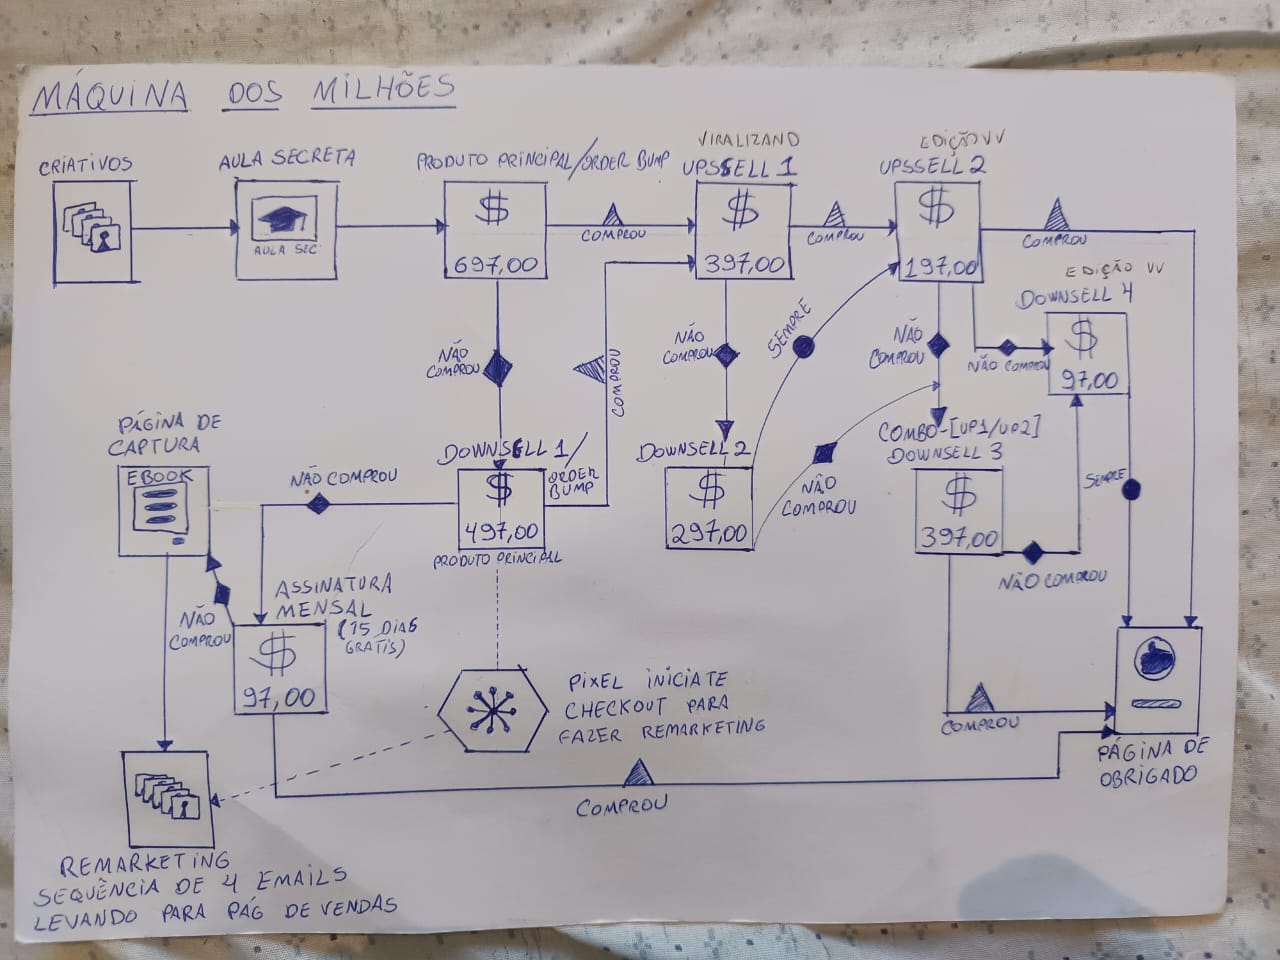 MÁQUINA DOS MILHÕES
CRIATIVOS
AULA SECRETA
AULA SEC
PRODUTO PRINCIPAL/ORDER BUMP
$
697,00
COMPROU
VIRALIZANDO
UPSSELL 1
$
397,00
COMPROU
EDIÇÃO VV
UPSSELL 2
$
197,00
COMPROU
EDIÇÃO VV
DOWNSELL 4
$
97,00
NÃO
COMPROU
COMPROU
NÃO
COMPROU
SEMPRE
NÃO
COMPROU
NÃO COMPROU
PÁGINA DE
CAPTURA
EBOOK
NÃO COMPROU
DOWNSELL 1/
ORDER
BUMP
$
497,00
PRODUTO PRINCIPAL
DOWNSELL 2
$
297,00
NÃO
COMPROU
COMBO-[UP1/UP2]
DOWNSELL 3
$
397,00
SEMPRE
NÃO COMPROU
NÃO
COMPROU
ASSINATURA
MENSAL
(15 DIAS
GRATIS)
$
97,00
PIXEL INICIATE
CHECKOUT PARA
FAZER REMARKETING
COMPROU
COMPROU
PÁGINA DE
OBRIGADO
REMARKETING
SEQUÊNCIA DE 4 EMAILS
LEVANDO PARA PÁG DE VENDAS